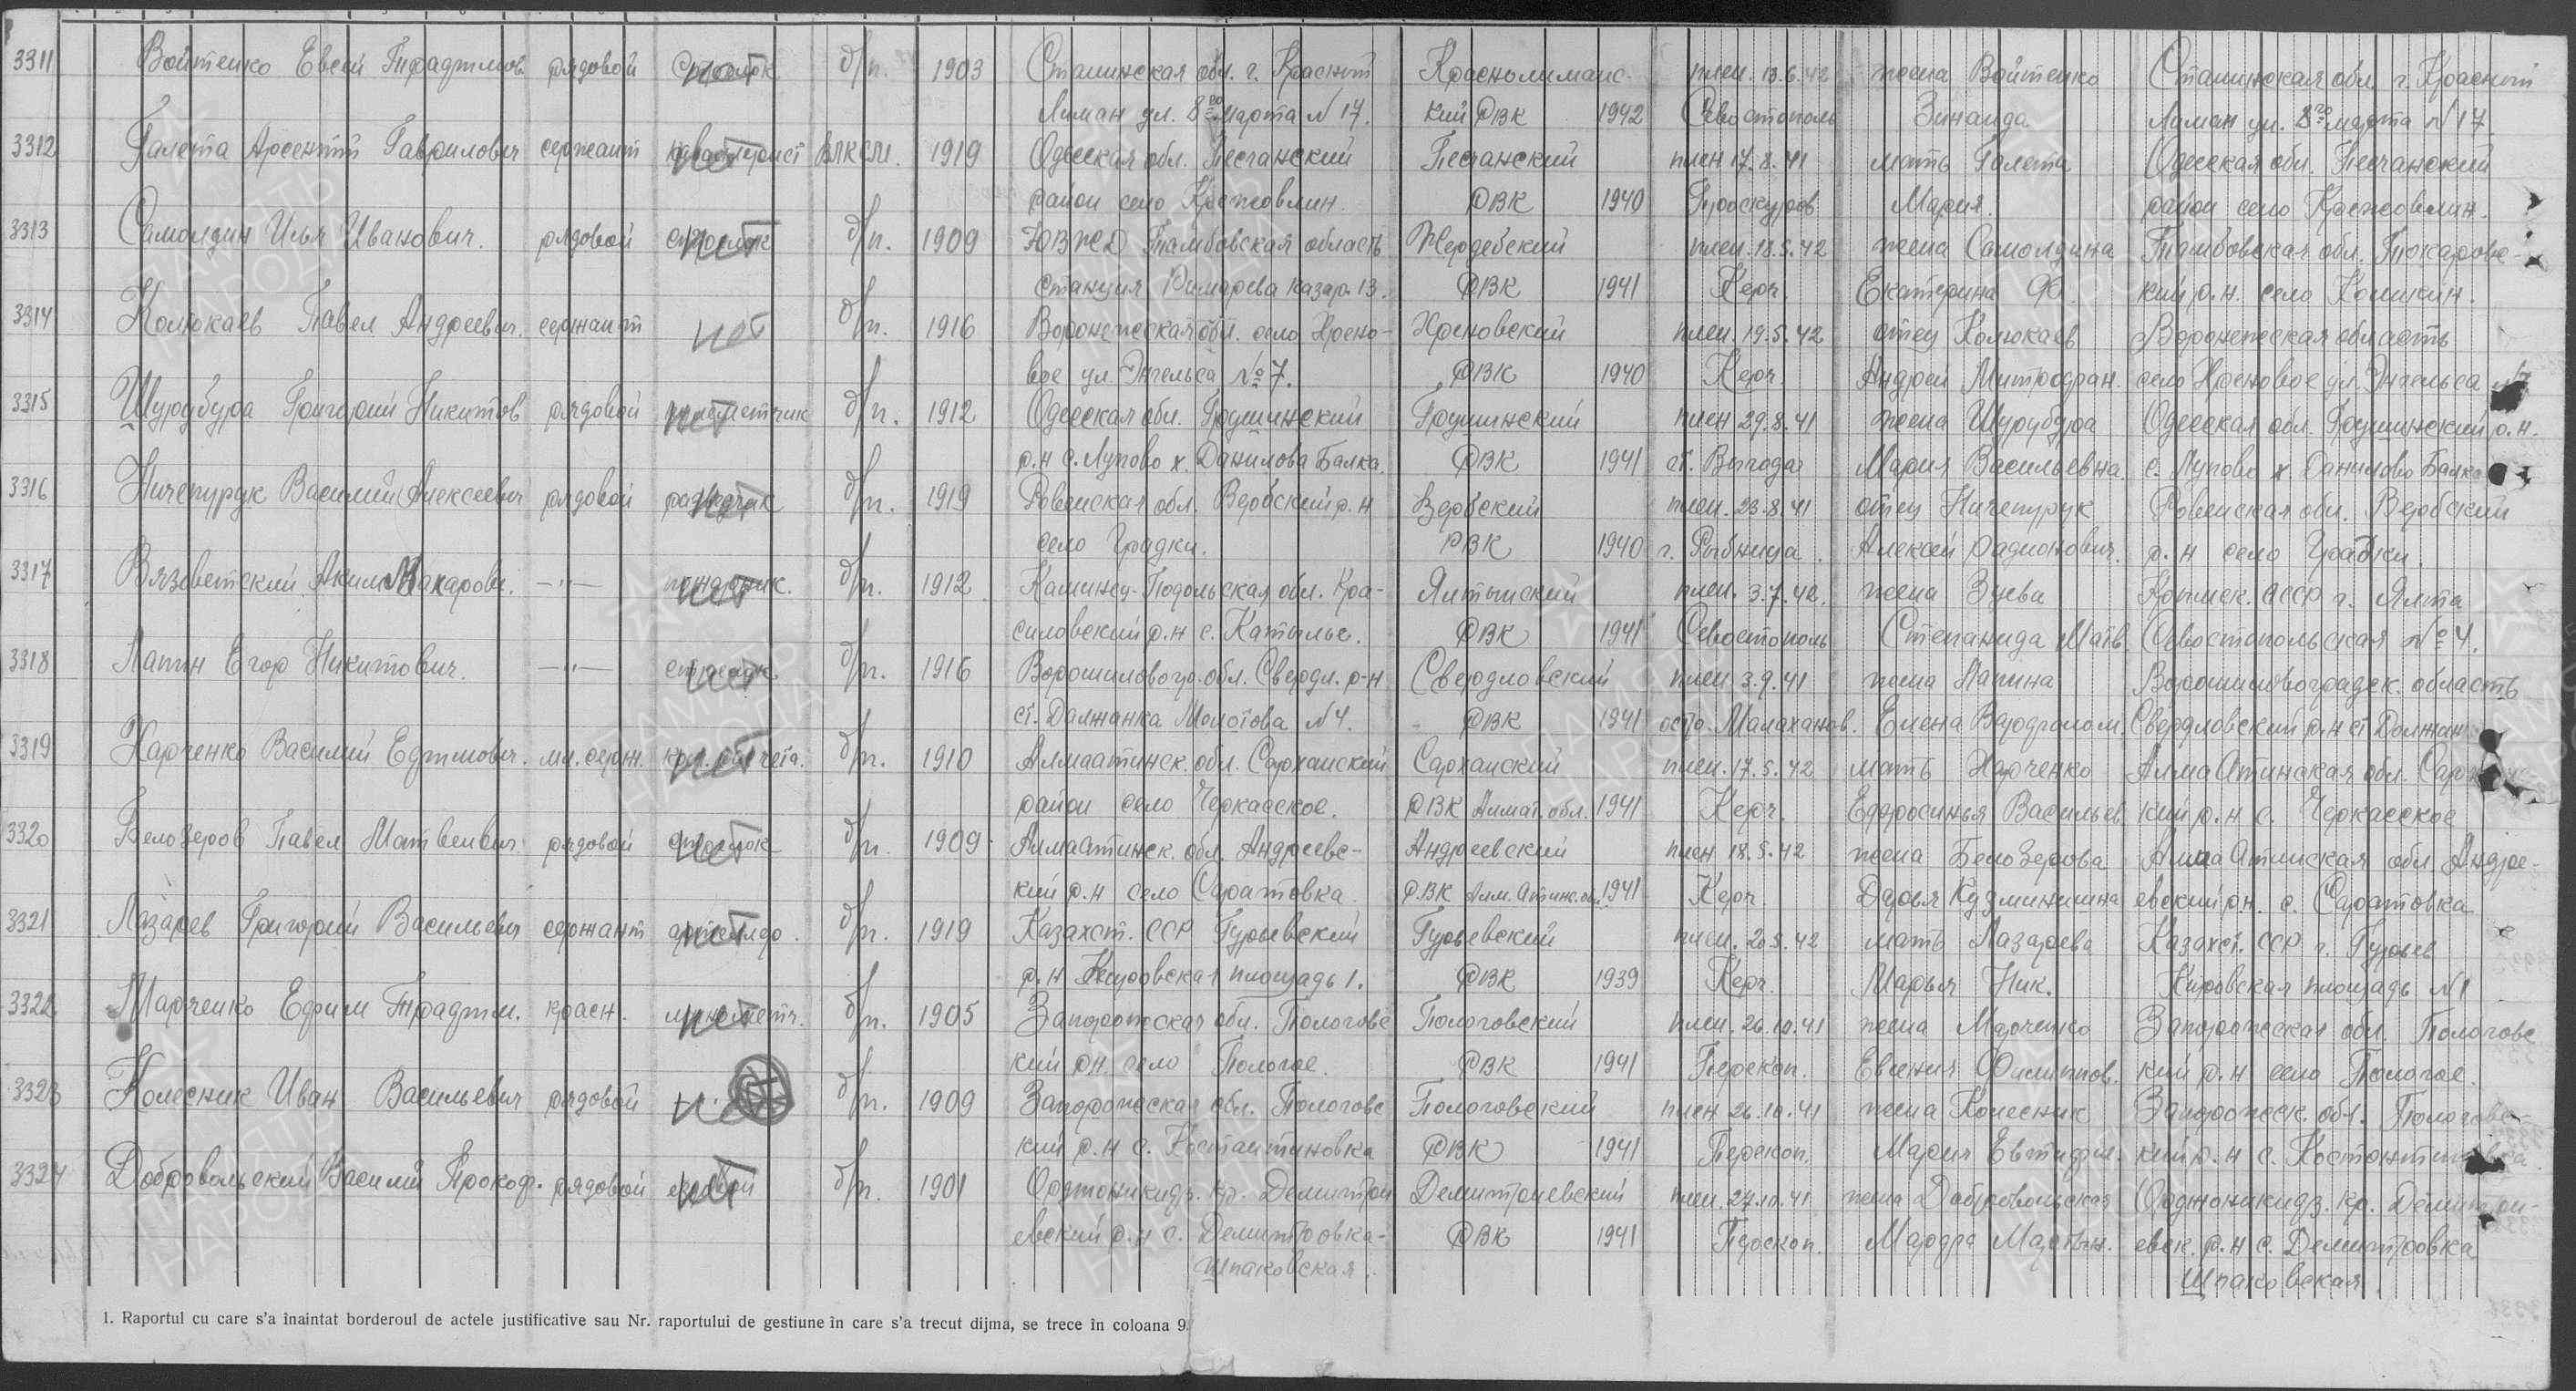 3311 Войтенко Евсей Трафимов. рядовой стрелок нет б/п. 1903 Сталинская обл. г. Красный Краснолиманс- плен. 13.6.42 жена Войтенко Сталинская обл. г. Красный
Лиман ул. 8го марта №17. кий РВК 1942 Севостополь Зинаида Лиман ул. 8го марта №17
3312 Галета Арсентий Гаврилович сержант нет ВЛКСМ. 1919 Одесская обл. Песчанский Песчанский плен 17.8.41 мать Галета Одесская обл. Песчанский
район село РВК 1940 Проскуров Мария. район село
3313 Самолдин Илья Иванович. рядовой стрелок нет б/п. 1909 ЮВЖД Тамбовская область плен. 18.5.42 жена Самолдина Тамбовская обл. Токаровс-
станция Римарева казар. 13. РВК 1941 Керч. Екатерина Ф. кий р.н. село
3314 Колюкаев Павел Андреевич. сержант нет б/п. 1916 Воронежская обл. село Хрено- Хреновский плен. 19.5.42 отец Колюкаев Воронежская область
вое ул. Энгельса №7. РВК 1940 Керч. Андрей Митрофан. село Хреновое ул. Энгельса
3315 Шурубура Григорий Никитов рядовой нет б/п. 1912 Одесская обл. Грушинский Грушинский плен 29.8.41 жена Шурубура Одесская обл. Грушинский р.н.
р.н с. Лупово х. Данилова Балка. РВК 1941 ст. Выгода Мария Васильевна с. Лупово х. Данилово Балка
3316 Ничепурук Василий Алексеевич рядовой разведчик нет б/п. 1919 Ровенская обл. Вербский р.н Вербский плен. 23.8.41 отец Ничепурук Ровенская обл. Вербский
село Градки. РВК 1940 г. Рыбница. Алексей Радионович. р.н село Градки.
3317 Вязоветский Аким Макаров. —"— нет б/п. 1912 Каминец-Подольская обл. Кра- Ялтынский плен. 3.7.42. жена Зуева Крымск. АССР г. Ялта
силовский р.н с. РВК 1941 Севостополь Степанида Матв. Севостопольская №4.
3318 Лапин Егор Никитович. —"— нет б/п. 1916 Ворошиловогр. обл. Свердл. р-н Свердловский плен 3.9.41 жена Лапина Ворошиловоградск. область
ст. Должанка Молотова №4. РВК 1941 остр. Малаханов. Елена Свердловский р.н ст Должан
3319 Харченко Василий Ефимович. мл. серж. нет б/п. 1910 Алмаатинск. обл. Сарханский Сарханский плен. 17.5.42 мать Харченко Алма Атинская обл.
район село Черкасское. РВК Алмат. обл. 1941 Керч. Ефросинья Васильев. кий р.н с. Черкасское
3320 Белозеров Павел Матвеевич рядовой стрелок нет б/п. 1909 Алмаатинск. обл. Андреевс- Андреевский плен 18.5.42 жена Белозерова Алма Атинская обл. Андре-
кий р.н село Саратовка. РВК 1941 Керч. Дарья Кузминишна евский р.н. с. Саратовка
3321 Лазарев Григорий Васильевич сержант нет б/п. 1919 Казахст. ССР Гурьевский Гурьевский плен. 20.5.42 мать Лазарева Казахст. ССР г. Гурьев
р.н Кировская площадь 1. РВК 1939 Керч. Марья Ник. Кировская площадь №1
3322 Марченко Ефим Трафим. красн. нет б/п. 1905 Запорожская обл. Пологовс Пологовский плен. 26.10.41 жена Марченко Запорожская обл. Пологовс
кий р.н. село Пологое. РВК 1941 Перекоп. Евгения Филиппов. кий р.н село Пологое.
3323 Колесник Иван Васильевич рядовой б/п. 1909 Запорожская обл. Пологовс Пологовский плен 26.10.41 жена Колесник Запорожск. обл. Пологовс-
кий р.н с. Костантиновка РВК 1941 Перекоп. Мария кий р.н с.
3324 Добровольский Василий Прокоф. рядовой нет б/п. 1901 Орджоникидз. кр. Демитри Демитриевский плен. 27.10.41. жена Добровольская Орджоникидз. кр.
евский р.н с. Демитровка- РВК 1941 Перекоп. Марфа евск. р.н с. Демитровка
Шпаковская. Шпаковская
1. Raportul cu care s'a înaintat borderoul de actele justificative sau Nr. raportului de gestiune în care s'a trecut dijma, se trece în coloana 9.